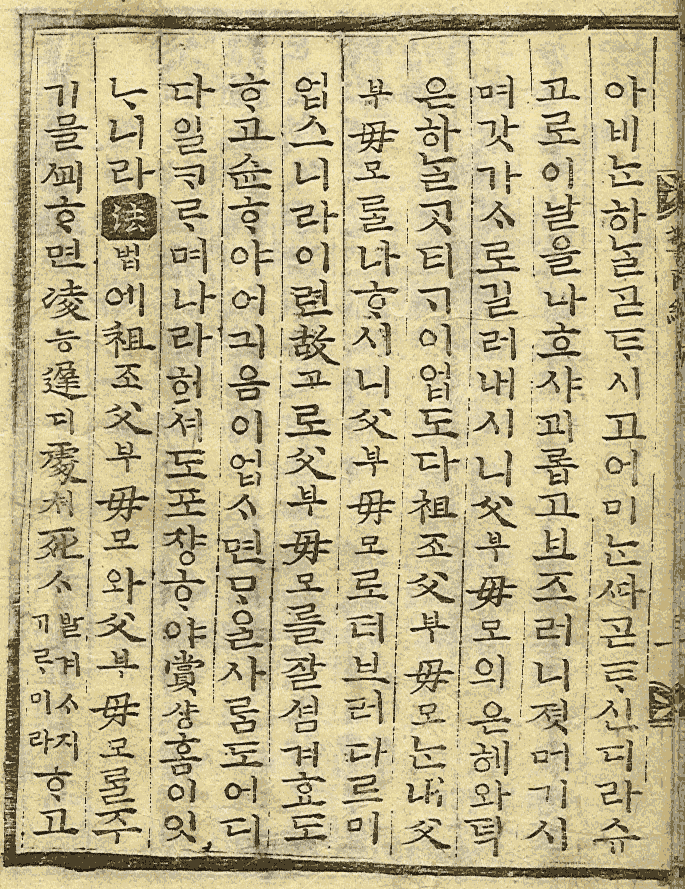 아비ᄂᆞᆫ하ᄂᆞᆯᄀᆞᆮᄐᆞ시고어미ᄂᆞᆫᄯᅡᄀᆞᆮᄐᆞ신디라슈
고로이날을나호샤괴롭고브즈러니졋머기시
며갓가ᄉᆞ로길러내시니父부母모의은혜와덕
은하ᄂᆞᆯᄀᆞᆺ티ᄀᆞ이업도다祖조父부母모ᄂᆞᆫ내父
부母모ᄅᆞᆯ나ᄒᆞ시니父부母모로더브러다ᄅᆞ미
업스니라이런故고로父부母모를잘셤겨효도
ᄒᆞ고슌ᄒᆞ야어긔음이업ᄉᆞ면ᄆᆞᄋᆞᆯ사ᄅᆞᆷ도어디
다일ᄏᆞᄅᆞ며나라헤셔도포쟝ᄒᆞ야賞샹홈이잇
ᄂᆞ니라法법에祖조父부母모와父부母모ᄅᆞᆯ주
기믈ᄭᅬᄒᆞ면凌능遲디處쳐死ᄉᆞ발겨ᄉᆞ지ᄒᆞ고